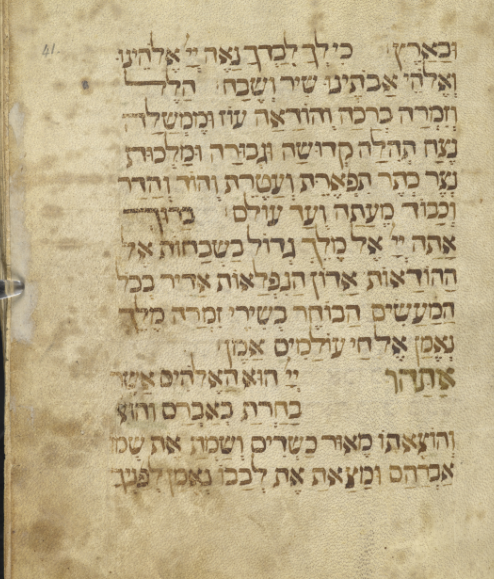 41.
ובארץ כי לך למלך נאה יי אלהינו
ואלהי אבתינו שיר ושבח הלל
וזמרה ברכה והודאה עוז וממשלה
נצח תהלה קדושה וגבורה ומלכות
נצר כתר תפארת ועטרת והוד והדר
וכבוד מעתה ועד עולם ברוך
אתה יי אל מלך גדול בשבחות אל
ההודאות אדון הנפלאות אדיר בכל
המעשים הבוחר בשירי זמרה מלך
נאמן אל חי עולמים אמן
אתה הו יי הוא האלהים אשר
בחרת באברם והוצא
והוצאתו מאור כשדים ושמת את שמו
אברהם ומצאת את לבבו נאמן לפניך